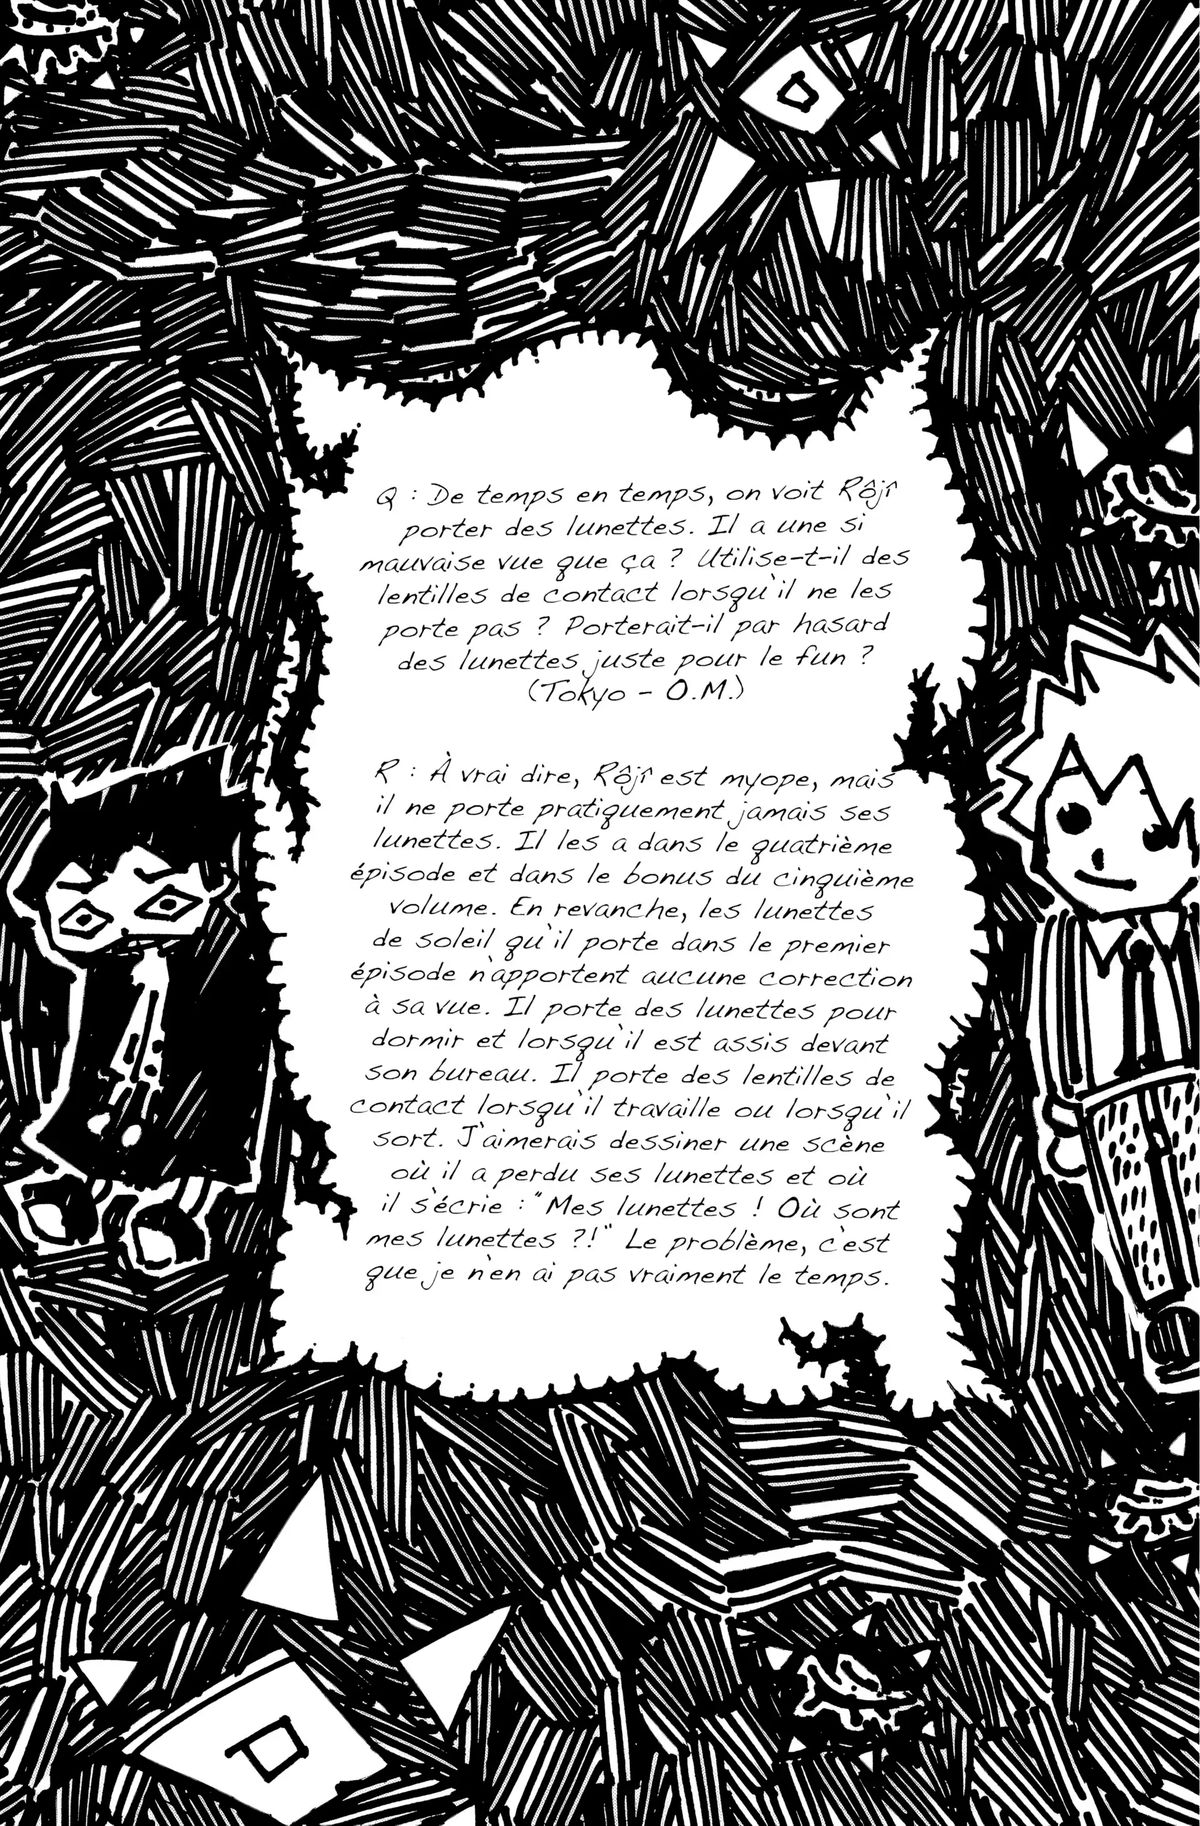 Q : De temps en temps, on voit Rôjî
porter des lunettes. Il a une si
mauvaise vue que ça ? Utilise-t-il des
lentilles de contact lorsqu'il ne les
porte pas ? Porterait-il par hasard
des lunettes juste pour le fun ?
(Tokyo - O.M.)
R : À vrai dire, Rôjî est myope, mais
il ne porte pratiquement jamais ses
lunettes. Il les a dans le quatrième
épisode et dans le bonus du cinquième
volume. En revanche, les lunettes
de soleil qu'il porte dans le premier
épisode n'apportent aucune correction
à sa vue. Il porte des lunettes pour
dormir et lorsqu'il est assis devant
son bureau. Il porte des lentilles de
contact lorsqu'il travaille ou lorsqu'il
sort. J'aimerais dessiner une scène
où il a perdu ses lunettes et où
il s'écrie : "Mes lunettes ! Où sont
mes lunettes ?!" Le problème, c'est
que je n'en ai pas vraiment le temps.